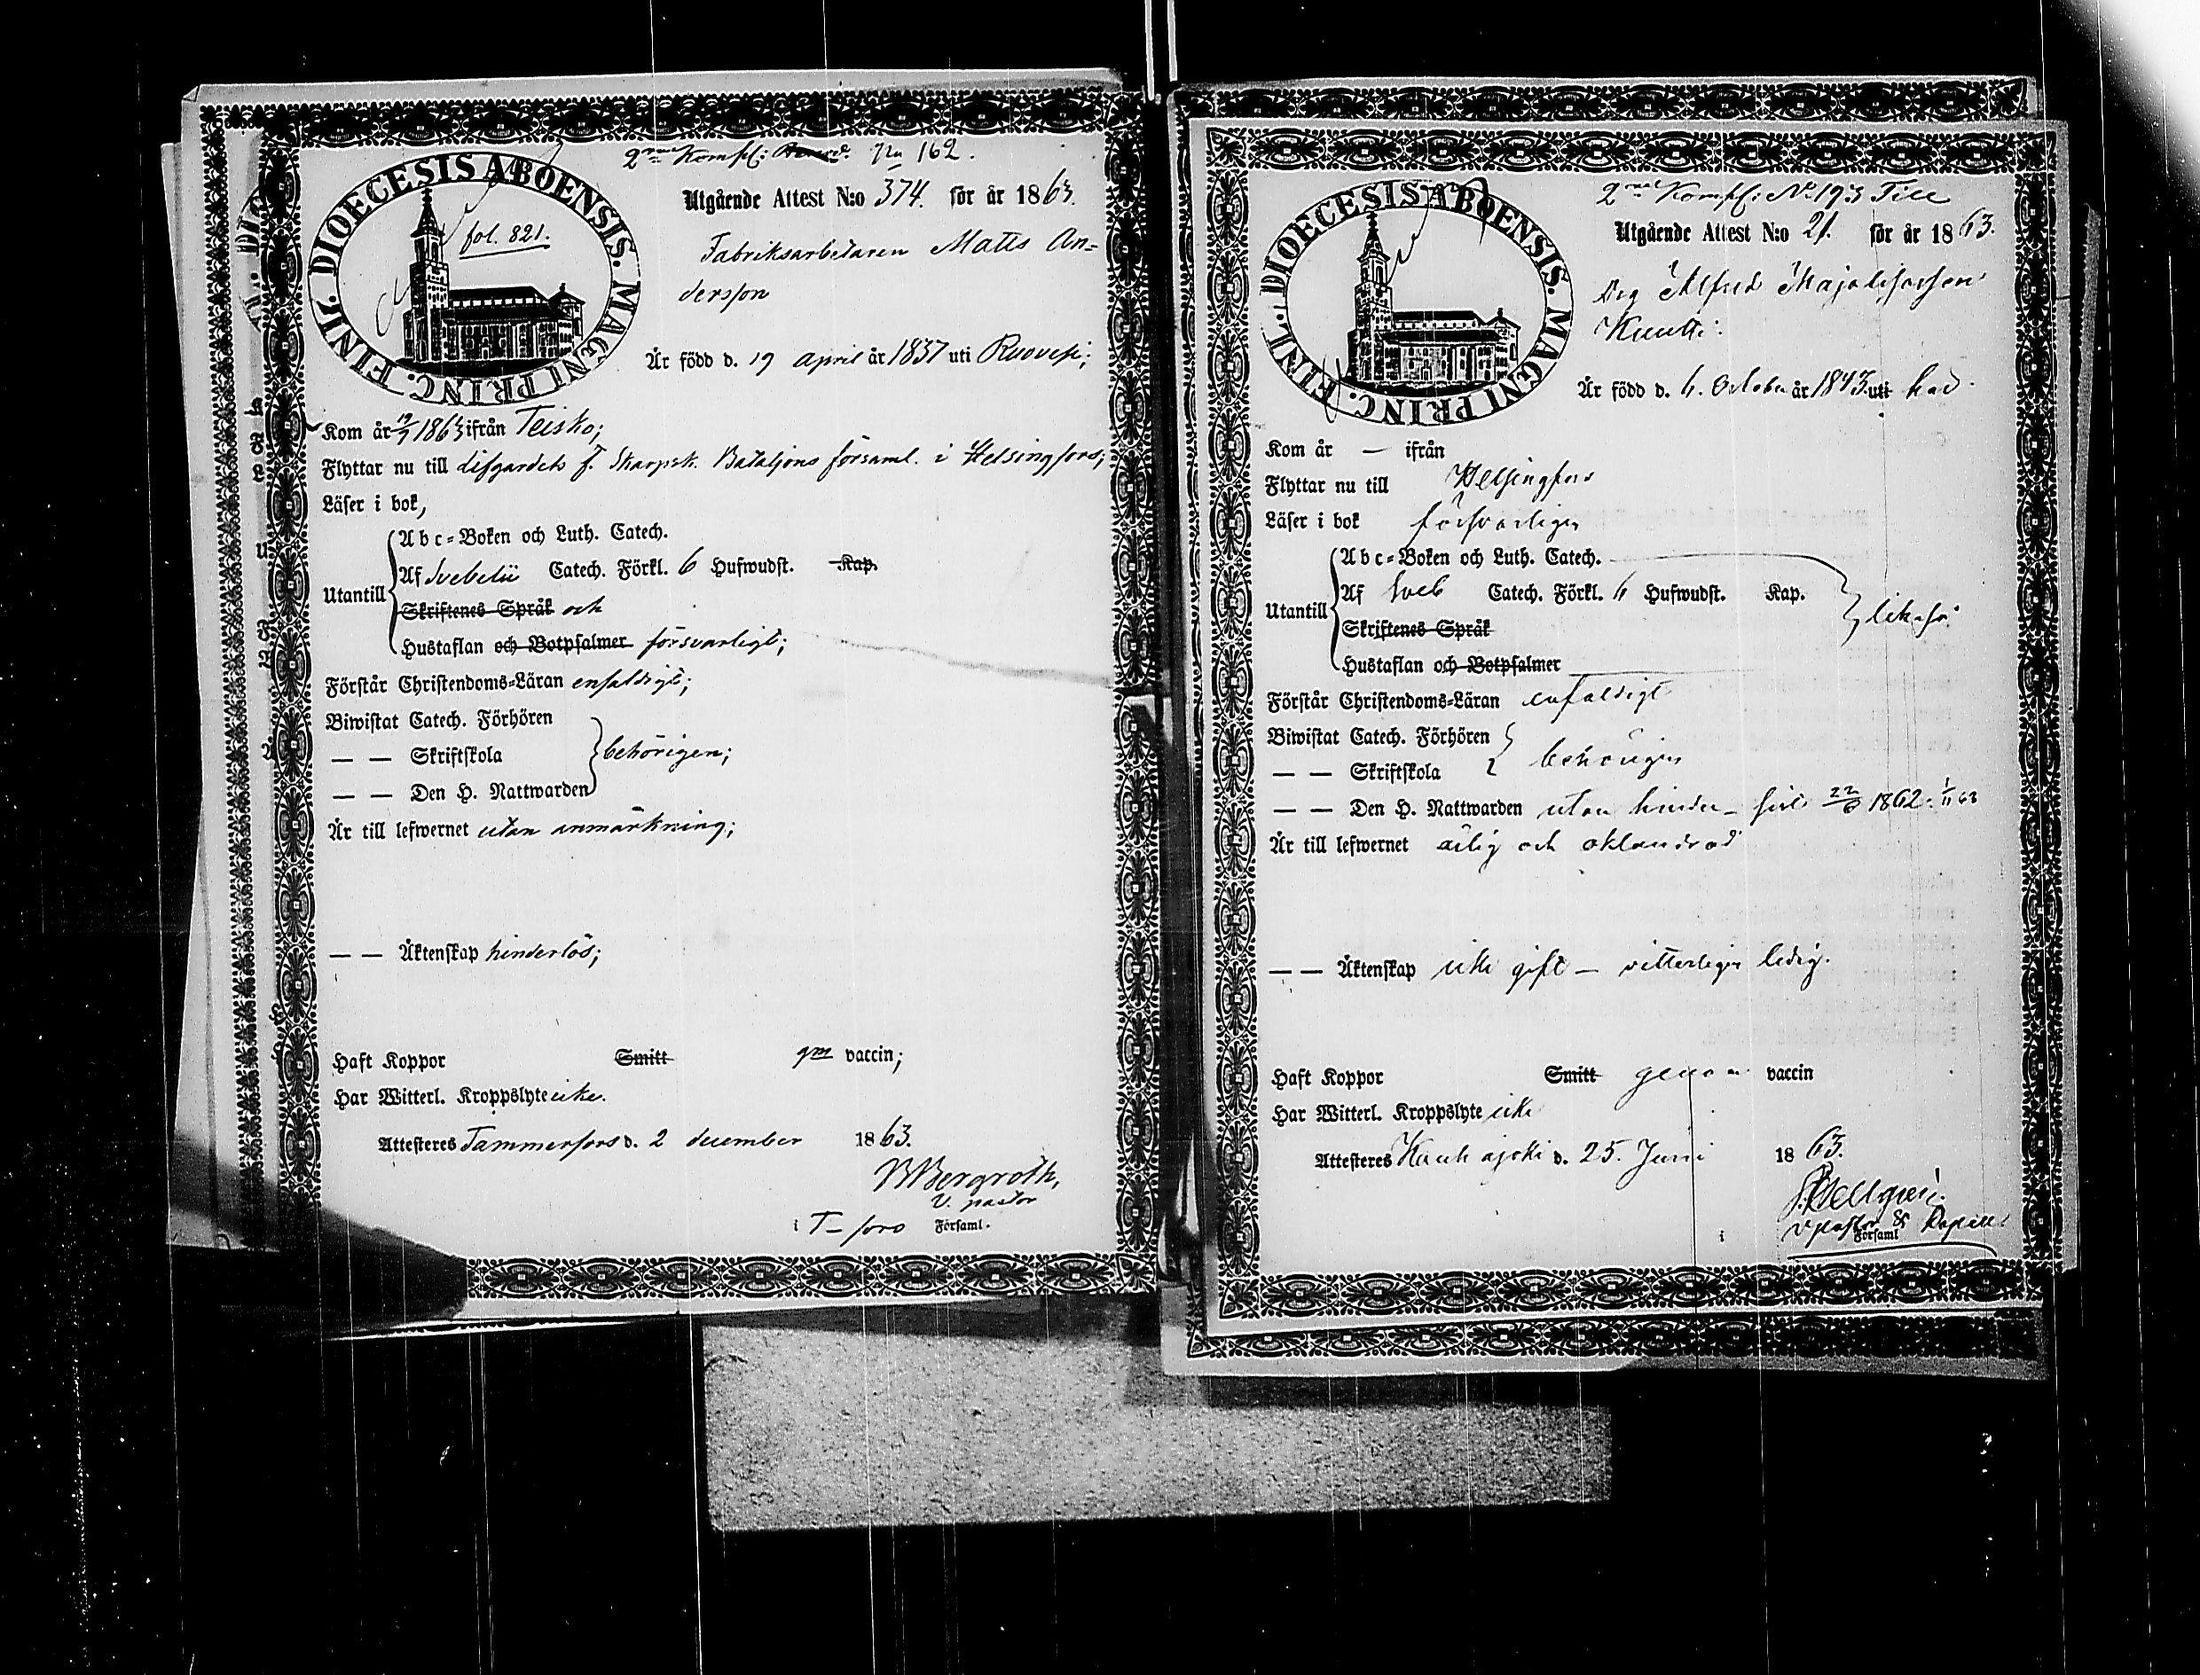 DIOECESIS ABOENSIS. MAGNI PRINC. FINL.
fol. 821.
2 Komp: No 162.
Utgående Attest N:o 374. för år 1863.
Fabriksarbetaren Matts An=
dersson
Är född d. 19 april år 1837 uti Ruovesi;
Kom år 1863 ifrån Teisko;
Flyttar nu till Lifgardets F. Skarpsk. Bataljons församl. i Helsingfors;
Läser i bok,
Utantill
Abc=Boken och Luth. Catech.
Af Svebelii Catech. Förkl. 6 Hufwudst. Kap.
Skriftenes Språk och
Hustaflan och Botpsalmer försvarligt;
Förstår Christendoms=Läran enfaldigt;
Biwistat Catech. Förhören
— — Skriftskola behörigen;
— — Den H. Nattwarden
Är till lefwernet utan anmärkning;
— — Äktenskap hinderlös;
Haft Koppor Smitt gm vaccin;
Har Witterl. Kroppslyte icke.
Attesteres Tammerfors d. 2 december 1863.
Bergroth,
V. pastor
i T-fors Församl.
DIOECESIS ABOENSIS. MAGNI PRINC. FINL.
2 Komp: No 193
Utgående Attest N:o 21. för år 1863.
Drg Alfred
Kuutti
Är född d. 6. October år 1843 uti
Kom år — ifrån
Flyttar nu till Helsingfors
Läser i bok försvarligen
Utantill
Abc=Boken och Luth. Catech.
Af Sveb Catech. Förkl. 6 Hufwudst. Kap.
likaså
Skriftenes Språk
Hustaflan och Botpsalmer
Förstår Christendoms=Läran enfaldigt
Biwistat Catech. Förhören
— — Skriftskola behörigen
— — Den H. Nattwarden utan hinder — 1862
Är till lefwernet ärlig och oklandrad
— — Äktenskap icke gift — vitterligen ledig.
Haft Koppor Smitt genom vaccin
Har Witterl. Kroppslyte icke
Attesteres Kauhajoki d. 25. Juni 1863.
i Församl